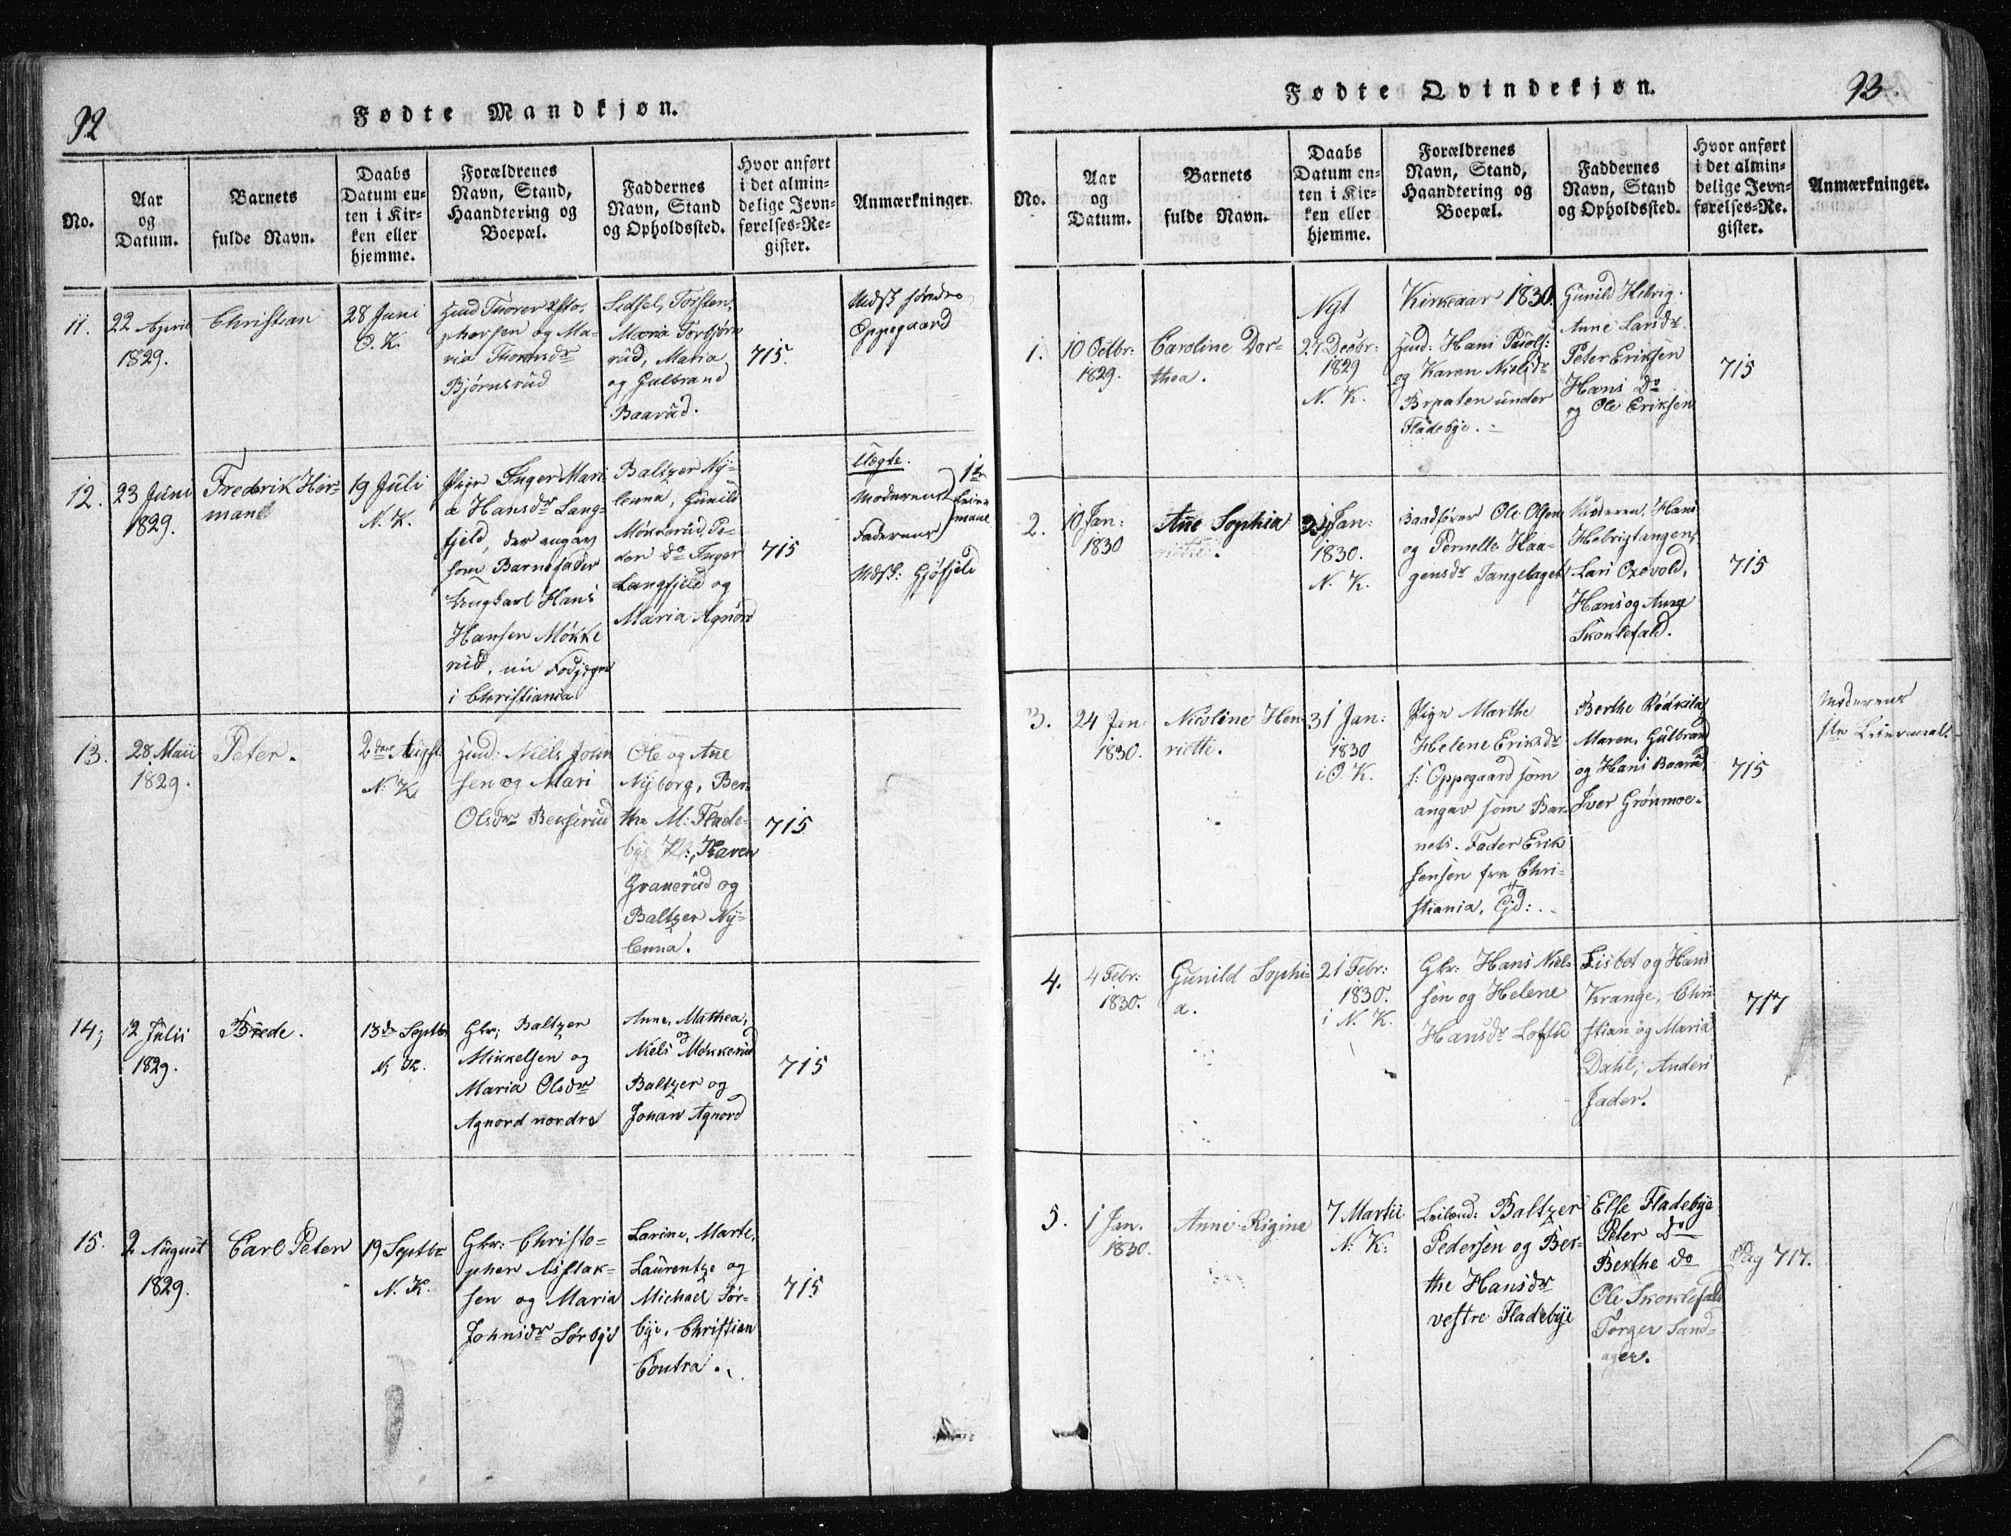 92
Fødte Mandkjøn.
No.
Aar
og
Datum.
Barnets
fulde Navn.
Daabs
Datum en-
ten i Kir-
ken eller
hjemme.
Forældrenes
Navn, Stand,
Haandtering og
Boepæl.
Faddernes
Navn, Stand
og Opholdssted.
Hvor anført
i det almin-
delige Jevn-
førelses-Re-
gister.
Anmærkninger.
11.
22 April
1829.
Christian
28 Juni
O. K.
phersen og Ma-
ria
Bjørnsrud
Sidsel, Torsten,
Maria Torbjørn
rud, Maria
og Gulbrand
Baarud.
715.
søndre
Oppegaard
12.
23 Juni
1829.
Frederik Her-
mand
19 Juli
N. K.
Pige Inger Mari
a Hansdr Lang-
fjeld, der angav
som Barnefader
Ungkarl Hans
Hansen Møkke
rud, nu
i Christiania
Baltzer Ny-
lenna, Gunild
Møkkerud, Pe-
der do Inger
Langfjeld og
Maria Agnord
715
Uægte.
Moderens
Faderens
1te
Leier
maal
13.
28 Maii
1829.
Peter.
2den Augst
N. K.
Huud: Niels John
sen og Mari
Olsdr Bekserud
Ole og Ane
Nyborg, Ber-
the M: Flade-
bye, Karen
Granerud og
Baltzer Ny-
lenna.
715
14,
12 Julii
1829.
Brede.
13de Septbr
N. K.
Gbr; Baltzer
Mikkelsen og
Maria Olsdr
Agnord nordre
Anne, Mathea,
Niels Møkkerud
Baltzer og
Johan Agnord
715
15.
2 August
1829.
Carl Peter
19 Septbr
N. K.
Gbr: Christo-
pher Aslak-
sen og Maria
Johnsdr Sørbye
Larine, Marte,
Laurentze og
Michael Sør-
bye, Christian
Contra.
715
93.
Fødte Qvindekjøn.
No.
Aar
og
Datum.
Barnets
fulde Navn.
Daabs
Datum en-
ten i Kir-
ken eller
hjemme.
Forældrenes
Navn, Stand,
Haandtering og
Boepæl.
Faddernes
Navn, Stand
og Opholdssted.
Hvor anført
i det almin-
delige Jevn-
førelses-Re-
gister.
Anmærkninger.
Nyt Kirkeaar 1830.
1.
10 Octbr:
1829.
Caroline Dor-
thea.
27 Decbr:
1829
N. K.
Huud: Hans
og Karen Nielsdr
Braaten under
Fladebye.
Gunild Helvig.
Anne Larsdr
Peter Eriksen
Hans Do
og Ole Eriksen
715
2.
10 Jan:
1830
Ane Sophia
24 Jan:
1830.
N. K.
Baadfører Ole Olsen
og Pernelle Haa-
gensdr Tangelaget
Moderen, Hans
Helvigtangen,
Lars Oxevold,
Hans og Anne
Skoklefald.
715
3.
24 Jan
1830.
Nicoline Hen
riette.
31 Jan:
1830
i O. K.
Pige Marthe
Helene Eriksdr
s: Oppegaard som
angav som Bar-
nets Fader Erik
Jensen fra Chri-
stiania,
Berthe
Maren, Gulbrand
og Hans Baarud
Iver Grønmoe
715
Moderens
1te Leiermaal
4.
4 Febr:
1830.
Gunild Sophi-
a.
21 Febr:
1830.
i N. K.
Gbr: Hans Niel-
sen og Helene
Hansdr Loftu
Lisbet og Hans
Krange, Chri
stian og Maria
Dahl, Anders
Jader.
717
5.
1 Jan.
1830.
Anne Rigine
7 Martii
N. K:
Leilænd: Baltzer
Pedersen og Ber-
the Hansdr
vestre Fladebye
Else Fladebye
Peter Do
Berthe do
Ole Skoklefald
Torger Sand-
ager.
Pag 717.